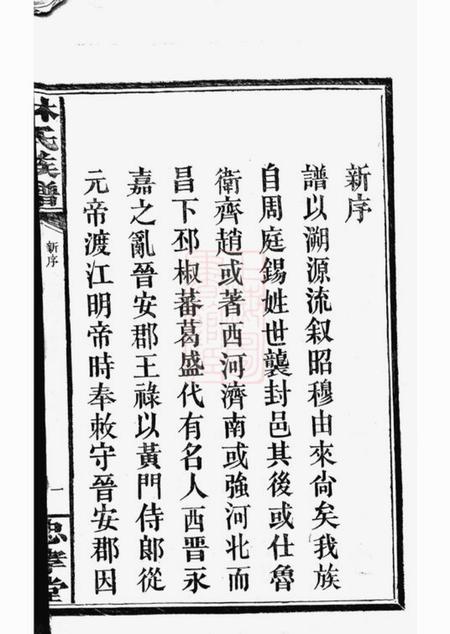 新序
譜以溯源流叙昭穆由來尙矣我族
自周庭錫姓世襲封邑其後或仕魯
衛齊趙或著西河濟南或強河北而
昌下邳椒蕃葛盛代有名人西晉永
嘉之亂晉安郡王祿以黃門侍郎從
元帝渡江明帝時奉敕守晉安郡因
林氏族譜
新序
一
忠孝堂